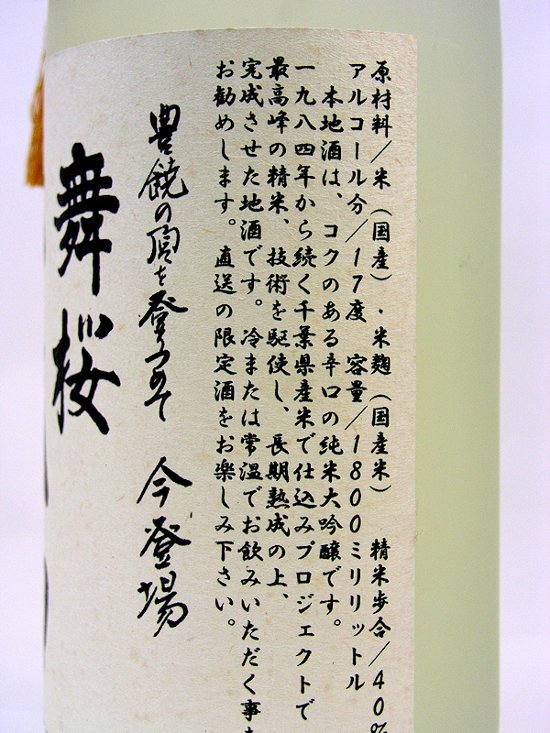 原材料/米(国産)・米麹(国産米) 精米歩合/40%
アルコール分/17度 容量/1800ミリリットル
本地酒は、コクのある辛口の純米大吟醸です。
一九八四年から続く千葉県産米で仕込みプロジェクトで
最高峰の精米、技術を駆使し、長期熟成の上、
完成させた地酒です。冷または常温でお飲みいただく事を
お勧めします。直送の限定酒をお楽しみ下さい。
豊饒の頂を登りつめて 今登場
舞桜